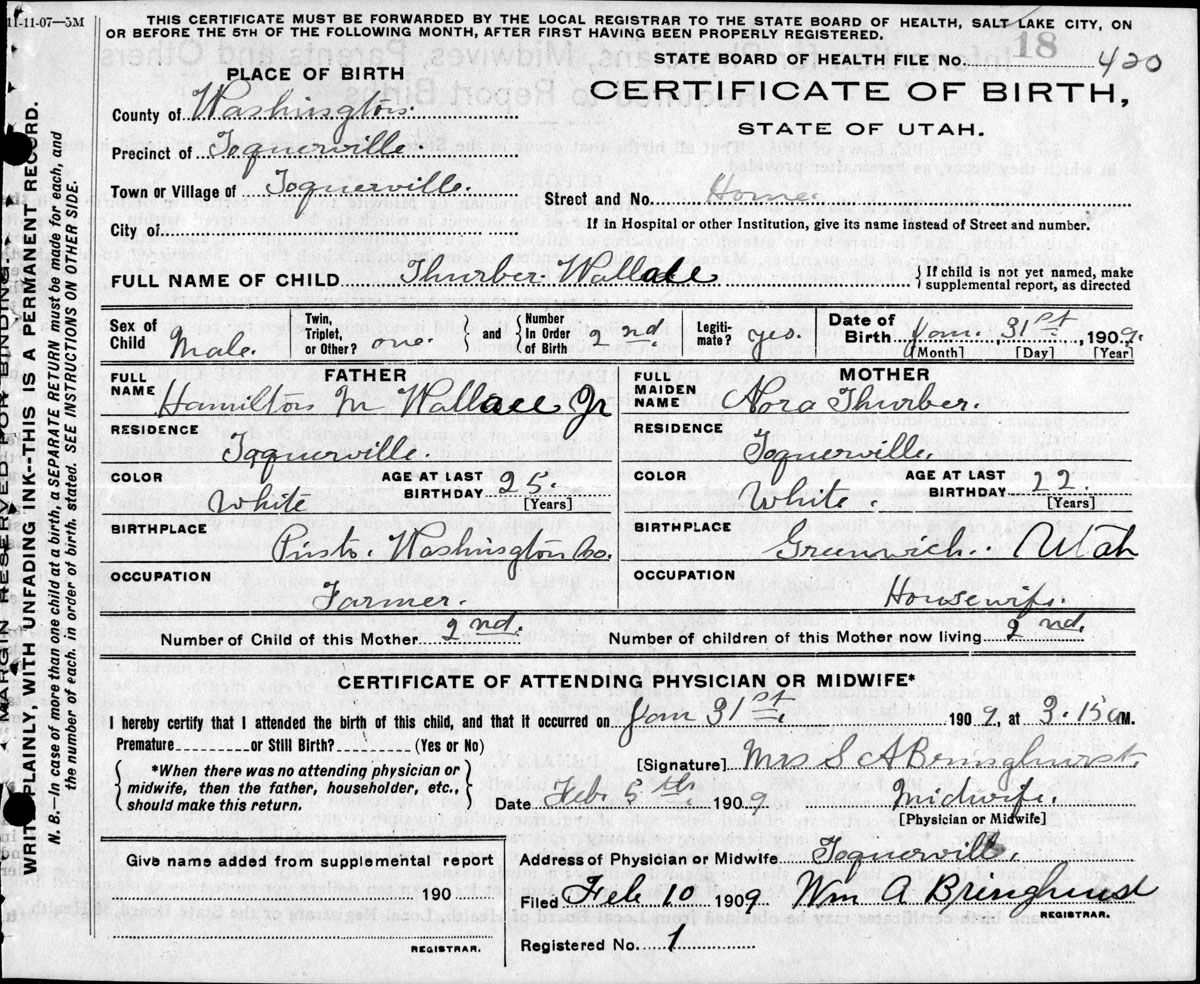 11-11-07—5M
THIS CERTIFICATE MUST BE FORWARDED BY THE LOCAL REGISTRAR TO THE STATE BOARD OF HEALTH, SALT LAKE CITY, ON
OR BEFORE THE 5TH OF THE FOLLOWING MONTH, AFTER FIRST HAVING BEEN PROPERLY REGISTERED.
18
STATE BOARD OF HEALTH FILE No. 420
PLACE OF BIRTH
CERTIFICATE OF BIRTH,
STATE OF UTAH.
County of Washington.
Precinct of Toquerville.
Town or Village of Toquerville.
Street and No. Home.
City of
If in Hospital or other Institution, give its name instead of Street and number.
FULL NAME OF CHILD Thurber Wallace
If child is not yet named, make
supplemental report, as directed
Sex of Child Male.
Twin, Triplet, or Other? one. and Number In Order of Birth 2nd.
Legitimate? yes.
Date of Birth Jan. 31st, 1909.
[Month] [Day] [Year]
FATHER
FULL NAME Hamilton M Wallace Jr
RESIDENCE
Toquerville.
COLOR White
AGE AT LAST BIRTHDAY 25.
[Years]
BIRTHPLACE
Pinto. Washington Co.
OCCUPATION
Farmer.
MOTHER
FULL MAIDEN NAME Nora Thurber.
RESIDENCE
Toquerville.
COLOR White.
AGE AT LAST BIRTHDAY 22.
[Years]
BIRTHPLACE
Greenwich. Utah
OCCUPATION
Housewife.
Number of Child of this Mother 2nd. Number of children of this Mother now living 2nd.
CERTIFICATE OF ATTENDING PHYSICIAN OR MIDWIFE*
I hereby certify that I attended the birth of this child, and that it occurred on Jan 31st. 1909, at 3.15 a M.
Premature or Still Birth? (Yes or No)
*When there was no attending physician or
midwife, then the father, householder, etc.,
should make this return.
[Signature] Mrs S A Bringhurst
Date Feb. 5th. 1909 Midwife.
[Physician or Midwife]
Give name added from supplemental report
190
REGISTRAR.
Address of Physician or Midwife Toquerville.
Filed Feb 10 1909 Wm A Bringhurst
REGISTRAR.
Registered No. 1
MARGIN RESERVED FOR BINDING
WRITE PLAINLY, WITH UNFADING INK--THIS IS A PERMANENT RECORD.
N. B.—In case of more than one child at a birth, a SEPARATE RETURN must be made for each, and
the number of each, in order of birth, stated. SEE INSTRUCTIONS ON OTHER SIDE.